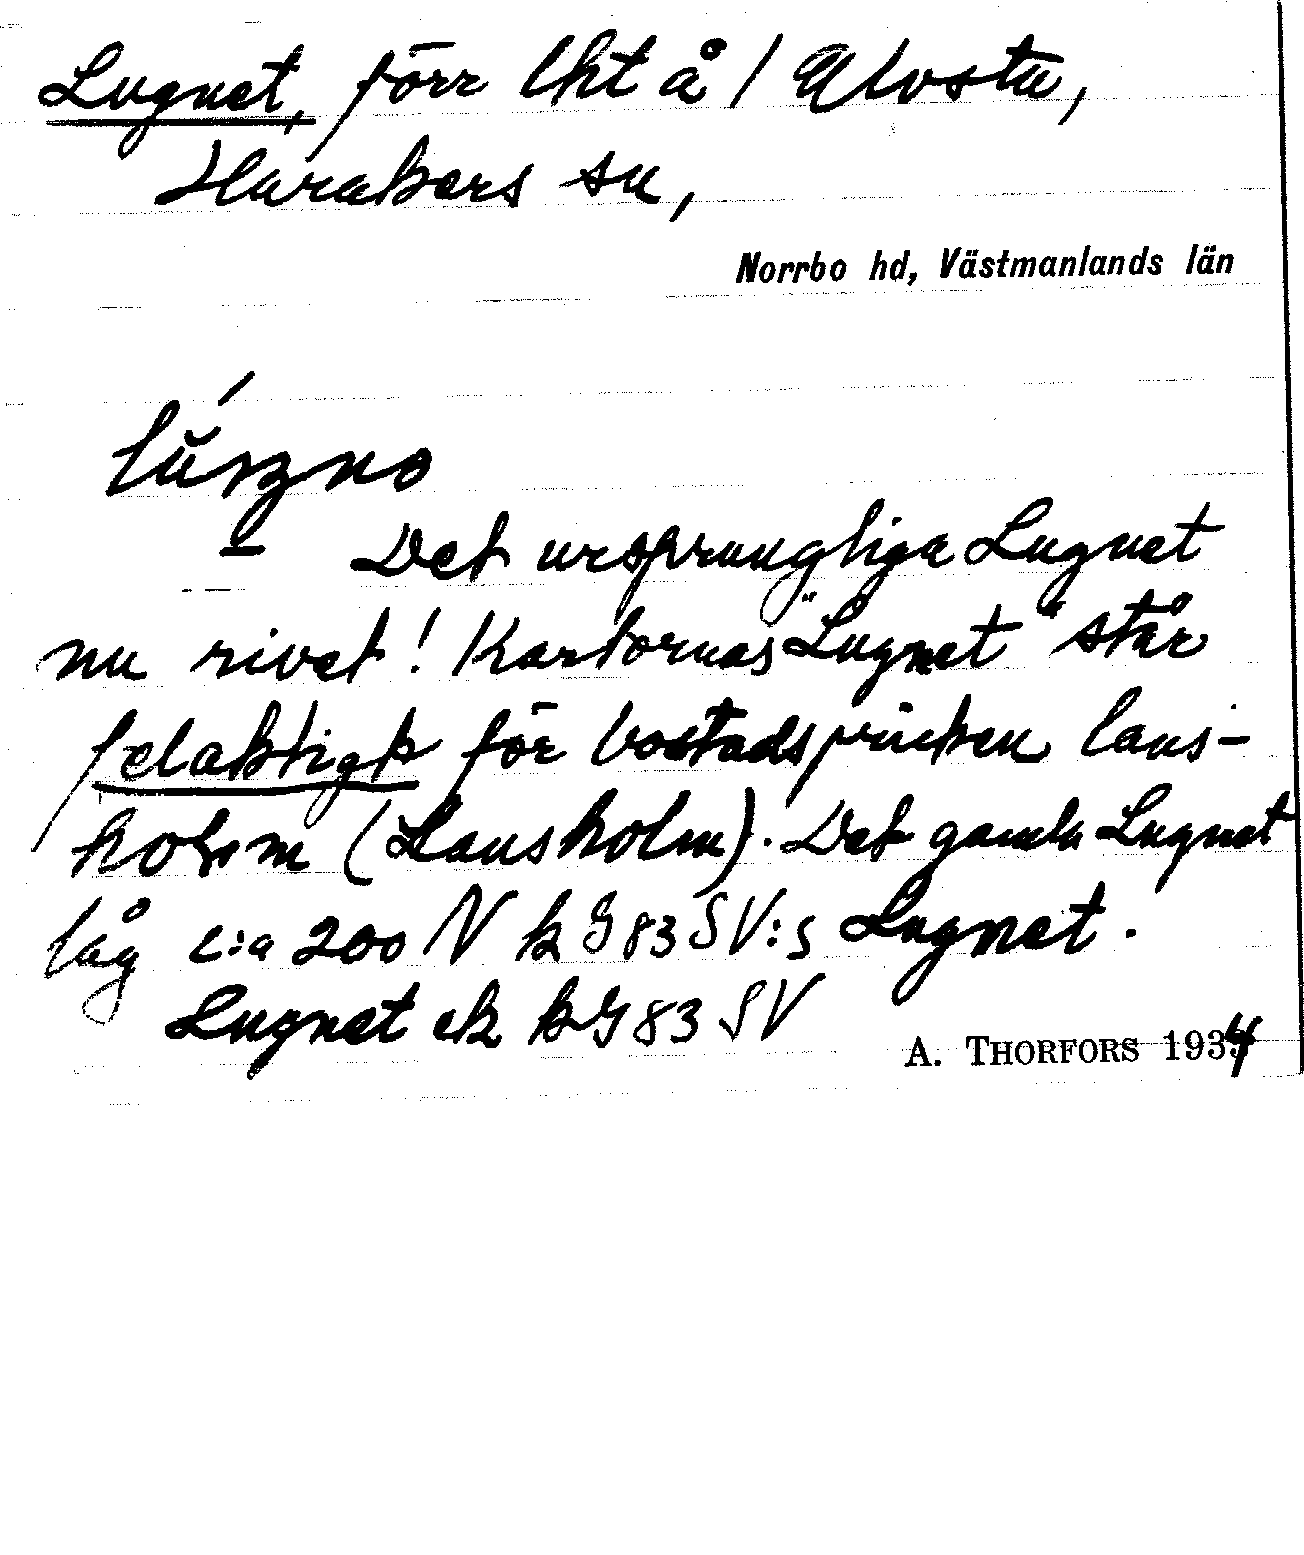 Lugnet, förr lht å / Alvsta,
Harakers sn,
Norrbo hd, Västmanlands län
Det ursprungliga Lugnet
nu rivet! Kartornas "Lugnet" står
felaktigt för bostadspricken Lans-
holm (Lansholm). Det gamla Lugnet
låg c:a 200 N k G 83 SV:s Lugnet.
Lugnet ek k G 83 SV
A. THORFORS 1934